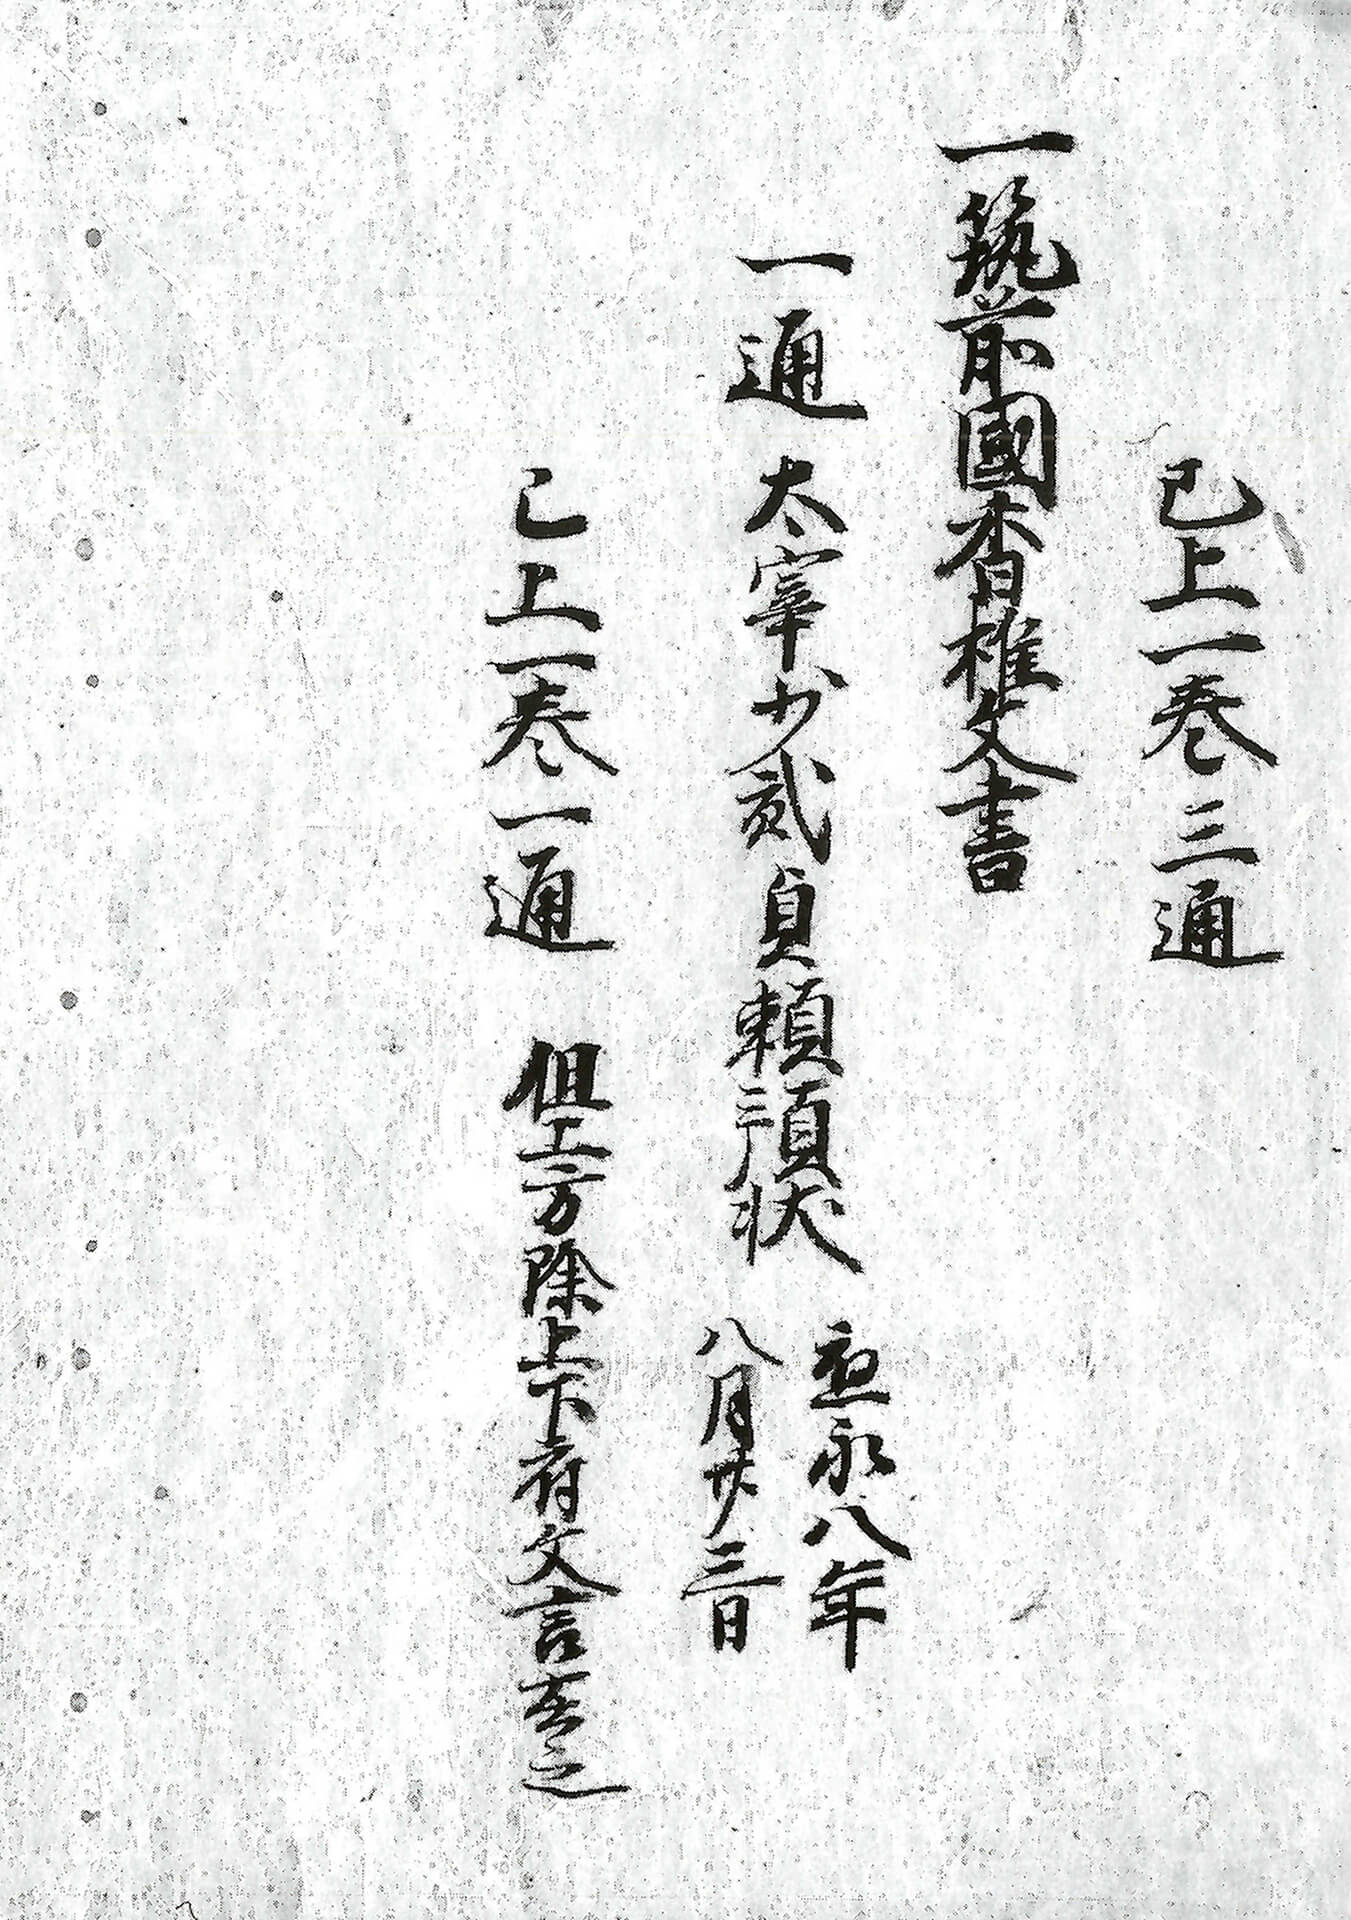 已上一巻三通
一筑前國香椎文書
一通太宰少貳貞頼預状 應永八年
八月廿三日
已上一巻一通 但工方除上下府文言在之